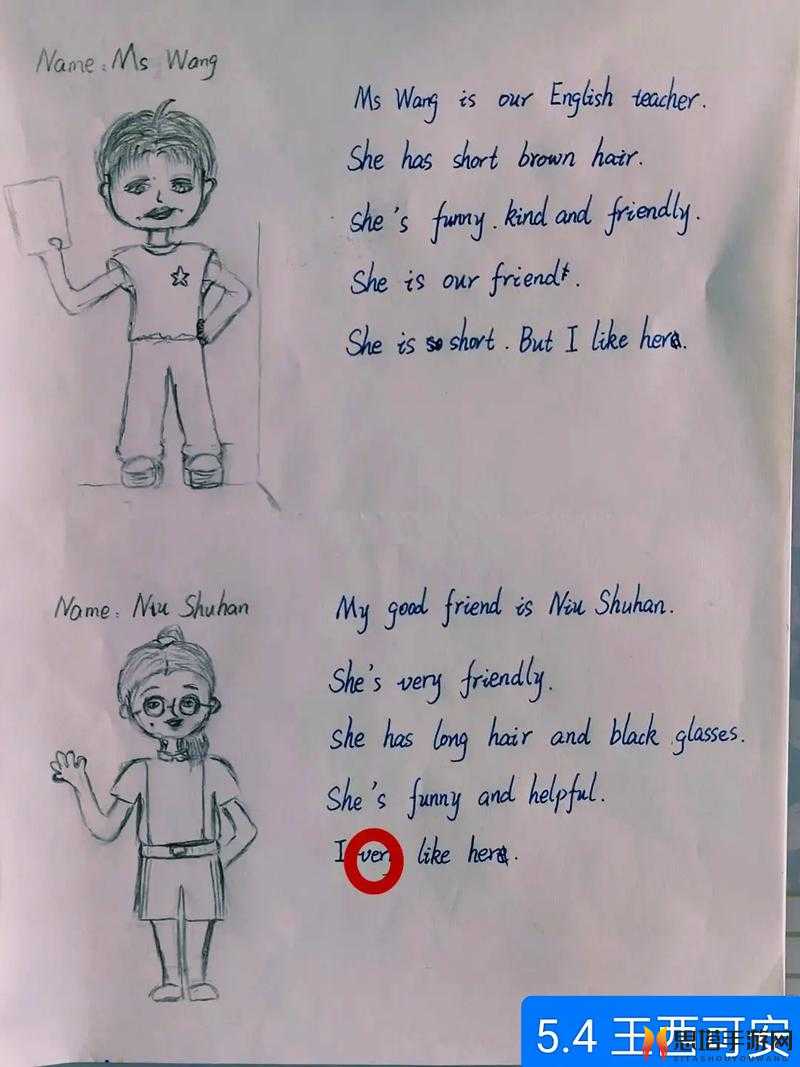 Name: Ms Wang
Ms Wang is our English teacher.
She has short brown hair.
She's funny. kind and friendly.
She is our friend.
She is so short. But I like her.
Name: Niu Shuhan
My good friend is Niu Shuhan.
She's very friendly.
She has long hair and black glasses.
She's funny and helpful.
I very like her.
5.4 王西可安
思塔手游网
SITASHOUYOUWANG